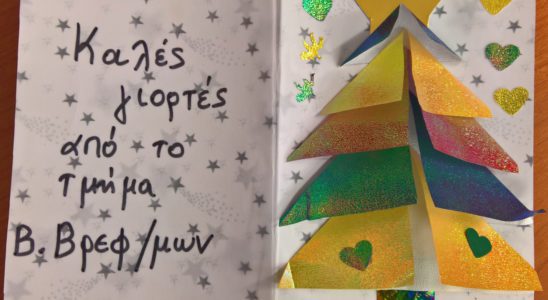 Καλές
γιορτές
από το
τμήμα
Β. Βρεφ/μων